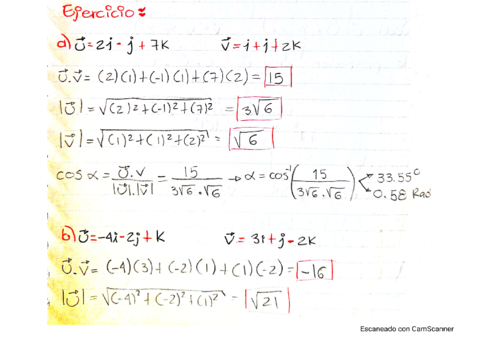 Ejercicio:
a) U⃗=2i-j+7K V⃗=i+j+2K
U⃗.V⃗=(2)(1)+(-1)(1)+(7)(2)=15
|U⃗|=√(2)²+(-1)²+(7)² = 3√6
|V⃗|=√(1)²+(1)²+(2)² = √6
cos α = U⃗.V / |U⃗|.|V⃗| = 15 / 3√6.√6 → α=cos⁻¹(15 / 3√6.√6) 33.55° 0.58 Rad
b) U⃗=-4i-2j+K V⃗=3i+j-2K
U⃗.V⃗=(-4)(3)+(-2)(1)+(1)(-2)=-16
|U⃗|=√(-4)²+(-2)²+(1)² = √21
Escaneado con CamScanner